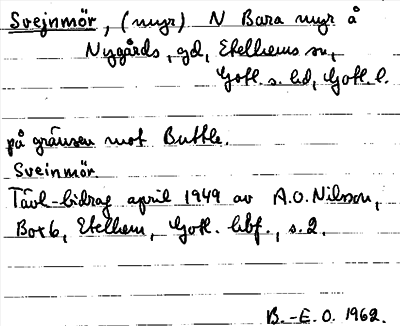 Svejnmör, (myr) N Bara myr å
Nygårds, gd, Etelhems sn,
Gotl. s. hd, Gotl. l.
på gränsen mot Buttle.
Sveinmör.
Tävl-bidrag april 1949 av A.O. Nilsson,
Box 6, Etelhem, Gotl. hbf., s. 2.
B.-E. O. 1962.